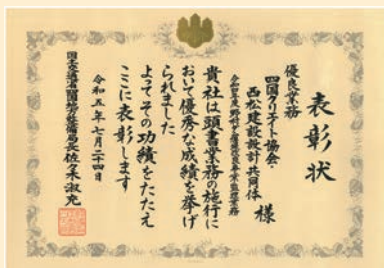 表彰状
優良業務
四国クリエイト協会・
西松建設設計共同体 様
貴社は頭書業務の施行に
おいて優秀な成績を挙げ
られました
よってその功績をたたえ
ここに表彰します
令和五年七月二十四日
国土交通省四国地方整備局長佐々木淑充